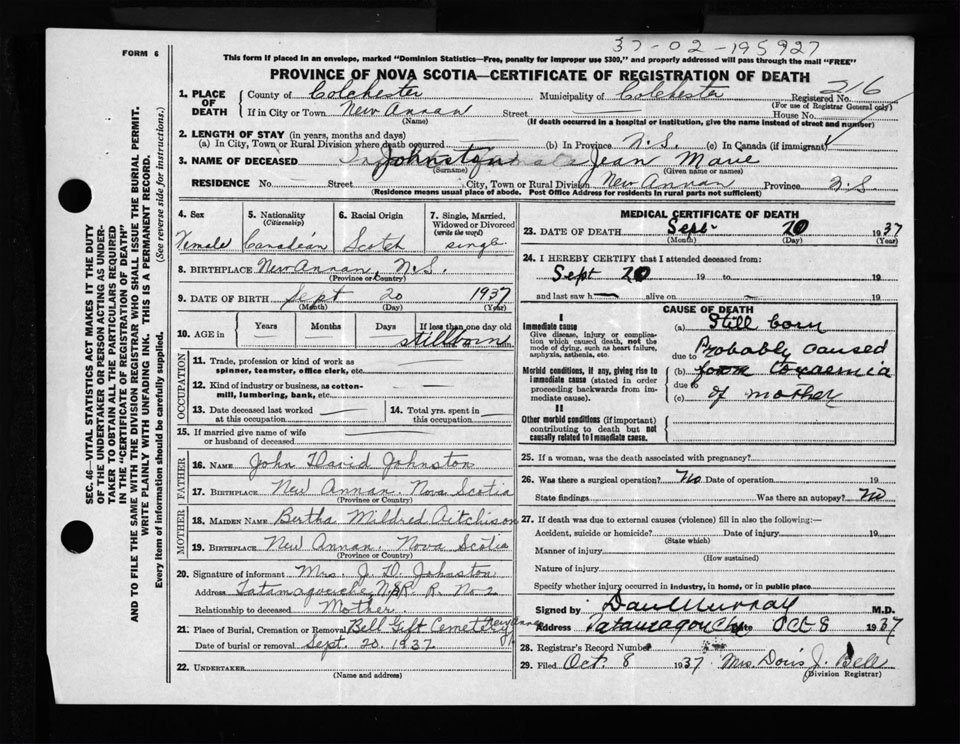 37-02-195927
FORM 6
This form if placed in an envelope, marked "Dominion Statistics—Free, penalty for improper use $300," and properly addressed will pass through the mail "FREE"
PROVINCE OF NOVA SCOTIA—CERTIFICATE OF REGISTRATION OF DEATH
1. PLACE OF DEATH
County of Colchester Municipality of Colchester Registered No. 216
(For use of Registrar General only)
If in City or Town New Annan Street House No.
(Name) (If death occurred in a hospital or institution, give the name instead of street and number)
2. LENGTH OF STAY (in years, months and days)
(a) In City, Town or Rural Division where death occurred (b) In Province N.S. (c) In Canada (if immigrant)
3. NAME OF DECEASED Johnston Jean Marie
(Surname) (Given name or names)
RESIDENCE No. Street City, Town or Rural Division New Annan Province N.S
(Residence means usual place of abode. Post Office Address for residents in rural parts not sufficient)
4. Sex
Female
5. Nationality
(Citizenship)
Canadian
6. Racial Origin
Scotch
7. Single, Married,
Widowed or Divorced
(write the word)
single
8. BIRTHPLACE New Annan, N.S.
(Province or Country)
9. DATE OF BIRTH Sept 20 1937
(Month) (Day) (Year)
10. AGE in
Years
Months
Days
If less than one day old
stillborn
OCCUPATION
11. Trade, profession or kind of work as
spinner, teamster, office clerk, etc.
12. Kind of industry or business, as cotton-
mill, lumbering, bank, etc.
13. Date deceased last worked
at this occupation
14. Total yrs. spent in
this occupation
15. If married give name of wife
or husband of deceased
FATHER
16. NAME John David Johnston
17. BIRTHPLACE New Annan. Nova Scotia
(Province or Country)
MOTHER
18. MAIDEN NAME Bertha Mildred Aitchison
19. BIRTHPLACE New Annan. Nova Scotia
(Province or Country)
20. Signature of informant Mrs. J. D. Johnston
Address Tatamagouche, N.S R. R. No 2
Relationship to deceased Mother
21. Place of Burial, Cremation or Removal Bell Gift Cemetery New Annan
Date of burial or removal Sept. 20. 1937.
22. UNDERTAKER
(Name and address)
MEDICAL CERTIFICATE OF DEATH
23. DATE OF DEATH Sept 20 1937
(Month) (Day) (Year)
24. I HEREBY CERTIFY that I attended deceased from:
Sept 20 19 to 19
and last saw h alive on 19
CAUSE OF DEATH
I
Immediate cause
Give disease, injury or complica-
tion which caused death, not the
mode of dying, such as heart failure,
asphyxia, asthenia, etc.
Morbid conditions, if any, giving rise to
immediate cause (stated in order
proceeding backwards from im-
mediate cause).
II
Other morbid conditions (if important)
contributing to death but not
causally related to immediate cause.
(a) Still born
due to Probably caused
(b) Toxaemia
due to
(c) of mother
25. If a woman, was the death associated with pregnancy?
26. Was there a surgical operation? No Date of operation 19
State findings Was there an autopsy? No
27. If death was due to external causes (violence) fill in also the following:—
Accident, suicide or homicide? Date of injury 19
(State which)
Manner of injury
(How sustained)
Nature of injury
Specify whether injury occurred in industry, in home, or in public place
Signed by Dan Murray M.D.
Address Tatamagouche Date Oct 8 1937
28. Registrar's Record Number
29. Filed Oct. 8 1937 Mrs. Doris J. Bell
(Division Registrar)
SEC. 46—VITAL STATISTICS ACT MAKES IT THE DUTY
OF THE UNDERTAKER OR PERSON ACTING AS UNDER-
TAKER TO OBTAIN ALL THE PARTICULARS REQUIRED
IN THE "CERTIFICATE OF REGISTRATION OF DEATH"
AND TO FILE THE SAME WITH THE DIVISION REGISTRAR WHO SHALL ISSUE THE BURIAL PERMIT.
WRITE PLAINLY WITH UNFADING INK. THIS IS A PERMANENT RECORD.
Every item of information should be carefully supplied. (See reverse side for instructions.)